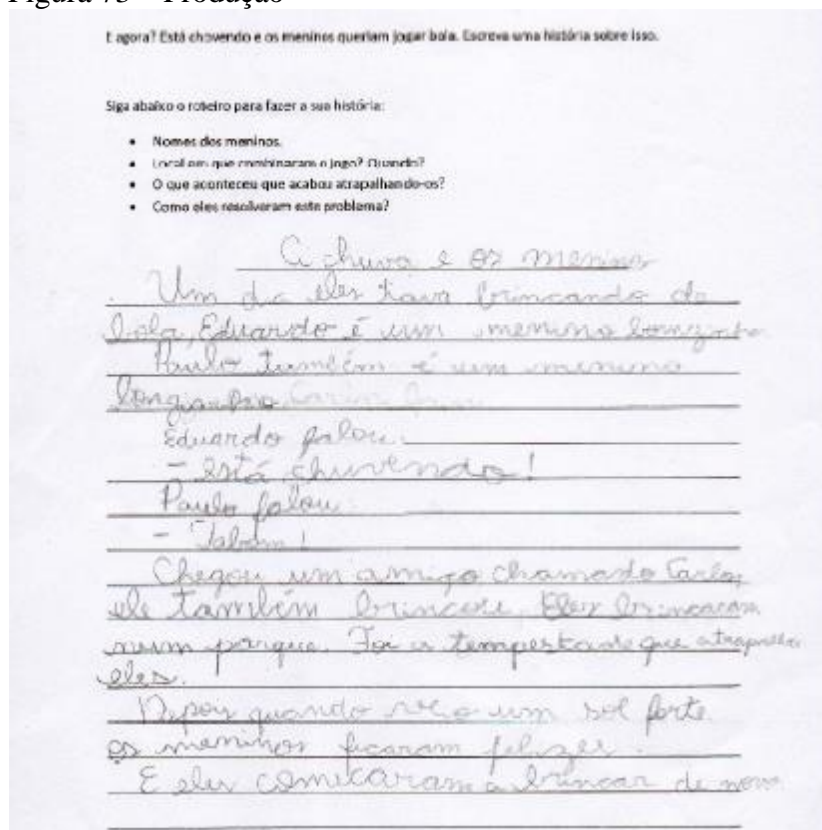 Figura 75 – Produção
E agora? Está chovendo e os meninos queriam jogar bola. Escreva uma história sobre isso.
Siga abaixo o roteiro para fazer a sua história:
• Nomes dos meninos.
• Local em que combinaram o jogo? Quando?
• O que aconteceu que acabou atrapalhando-os?
• Como eles resolveram este problema?
A chuva e os meninos
Um dia eles tava brincando de
bola, Eduardo é um menino bomzinho
Paulo também é um menino
Eduardo falou:
- está chuvendo!
Paulo falou:
- Tabom!
Chegou um amigo chamado Carlos,
ele também brincou, Eles brincaram
num parque. Foi a tempestade que atrapalhou
eles.
Depois quando veio um sol forte
os meninos ficaram felizes.
E eles comecaram a brincar de novo